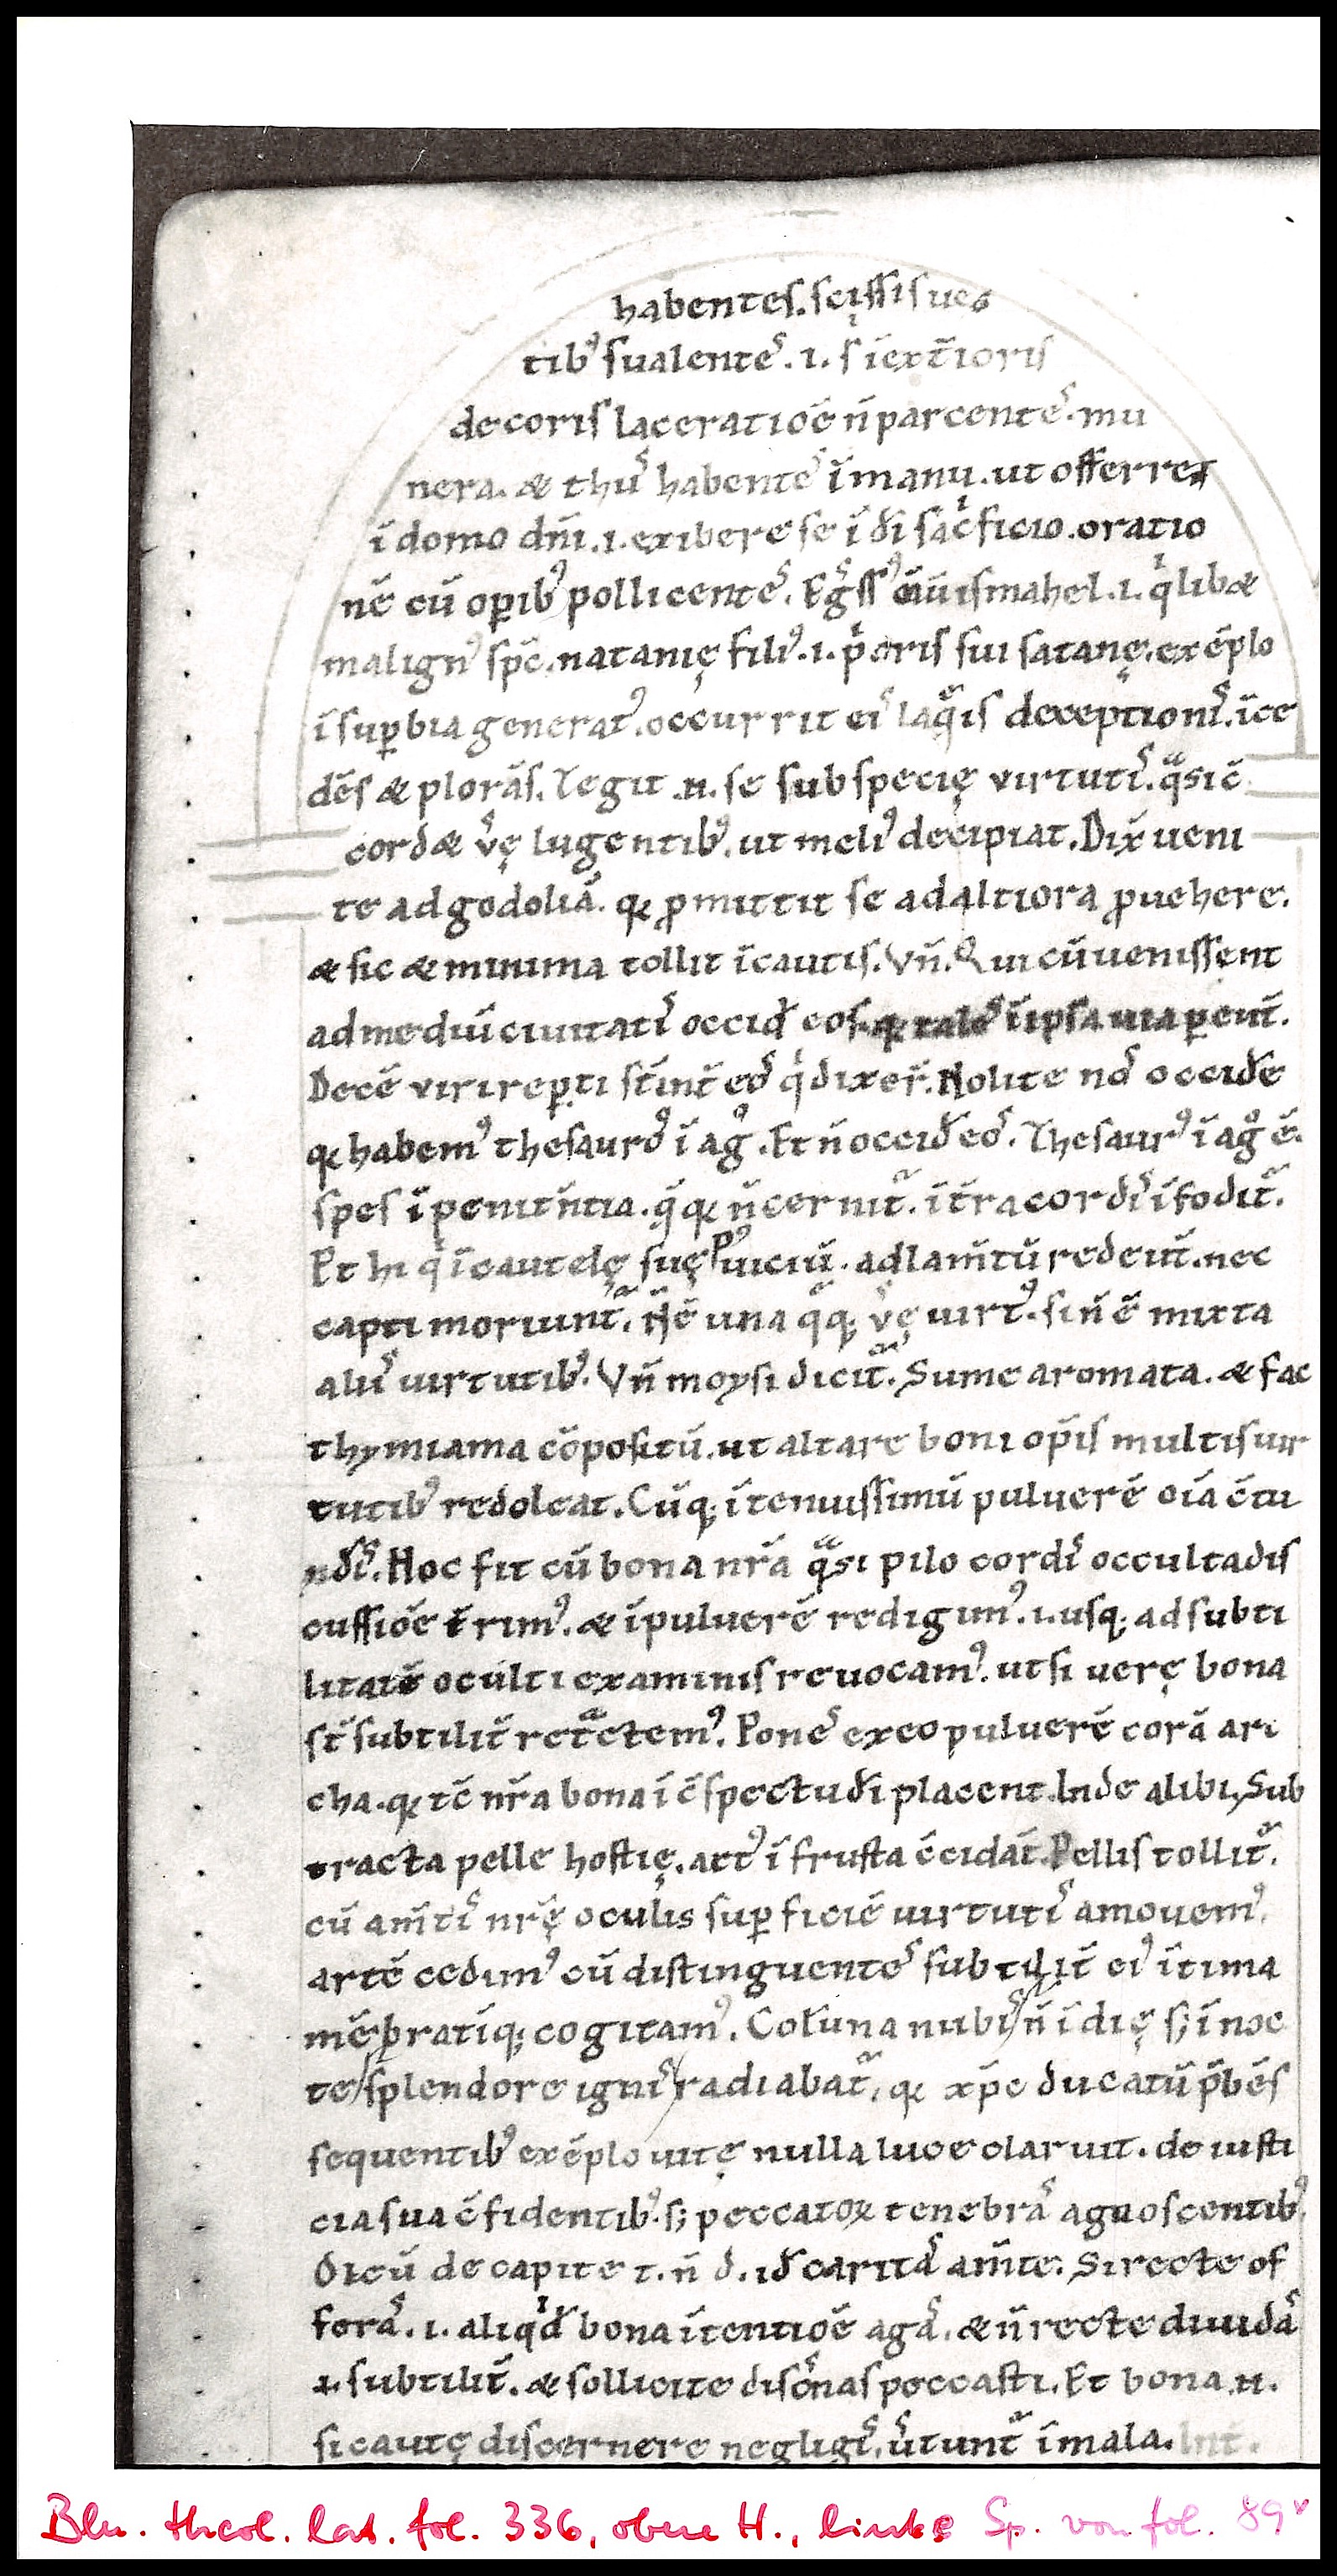 habentes. scissis ues
tib᾽ sualente᾽. i. s ĩext̄ioris
decoris laceratioē n̄ parcente᾽. mu
nera. & thu᾽ habente᾽ ĩ manu. ut offerret
ĩ domo dn̄i. i. exibere se ĩ dī sac̄ficio. oratio
nē cū opib᾽ pollicente᾽. Eg̃ss᾽ ismahel. i. q̇lib&
malign᾽ spc̄. natanię fili᾽. i. sui satanę. exēplo
ĩ supbia generat᾽. occurrit ei᾽ laq̃is deceptioni᾽. ĩce
dēs & plorās. Tegit .n. se sub specię virtuti᾽. q̃si c̄
cord& v̄ę lugentib᾽. ut meli᾽ decipiat. Dix̄ ueni
te ad godoliā. q; ꝓmittit se ad altiora ꝓuehere.
& sic & minima tollit ĩcautis. Vn̄. Qui cū uenissent
ad mediū ciuitati᾽ occid̄ eos. q; tale᾽ ĩ ipsa uia peunt̄.
Decē viri repti st̄ int̄ eo᾽ q̇ dixer̄. Nolite no᾽ occid̄e
q; habem᾽ thesauro᾽ ĩ ag᾽. Et n̄ occid̄ eo᾽. Thesaur᾽ ĩ ag᾽ ē.
spes ĩ penitn̄tia. q̃ q; n̄ cernit̃. ĩ t̄ra cordi᾽ ĩfodit̃.
Et hi q̇ ĩcautelę suę p᾽ uiciū. ad lam̄tū redeut̄. nec
capti moriunt̃. N̄ ē una q̃q; v̄ę uirt᾽. si n̄ ē mixta
alii᾽ uirtutib᾽. Vn̄ moysi dicit̃. Sume aromata. & fac
thymiama cōpositū. ut altare boni op̄is multis uir
tutib᾽ redoleat. Cūq; ĩ tenuissimū puluerē oīa c̄tu
nd̄i᾽. Hoc fit cū bona nr̄a q̃si pilo cordi᾽ occulta dis
cussiōe t̄rim᾽. & ĩ puluerē redigim᾽. i. usq; ad subti
litatē oculti examinis reuocam᾽. ut si uerę bona
st̄ subtilit̄ ret̃ctem᾽. Pone᾽ ex eo puluerē corā ar
cha. q; tc̄ nr̄a bona ĩ c̄spectu dī placent. Inde alibi, Sub
tracta pelle hostię. art᾽ ĩ frusta c̄cidāt. Pellis tollit̃.
cū am̄ti᾽ nr̄ę oculis supficiē uirtuti᾽ amouem᾽.
artē cedim᾽ cū distinguente᾽ subtilit̄ ei᾽ ĩtima
mēbratīq; cogitam᾽. Colūna nubi᾽ n̄ ĩ dię s; ĩ noc
te splendore igni᾽ radiabat̃. q; xp̄c ducatū p̄bēs
sequentib᾽ exēplo uitę nulla luce claruit. de iusti
cia sua c̄fidentib᾽. s; peccatoꝝ tenebra᾽ agnoscentib᾽.
Oicū de capite t. n̄ d. id̄ carita᾽ am̄te. Si recte of
fera᾽. i. aliq̇d bona ĩtentiōe aga᾽. & n̄ recte diuida᾽
.i. subtilit̄. & sollicite disc̄nas peccasti. Et bona .n.
si cautę discernere negligi᾽. u᾽tunt̃ ĩ mala.
Bln. theol. lat. fol. 336, obere H., linke Sp. von fol. 89ᵛ